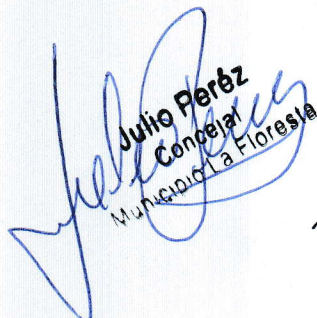 Julio Peréz
Concejal
Municipio La Floresta